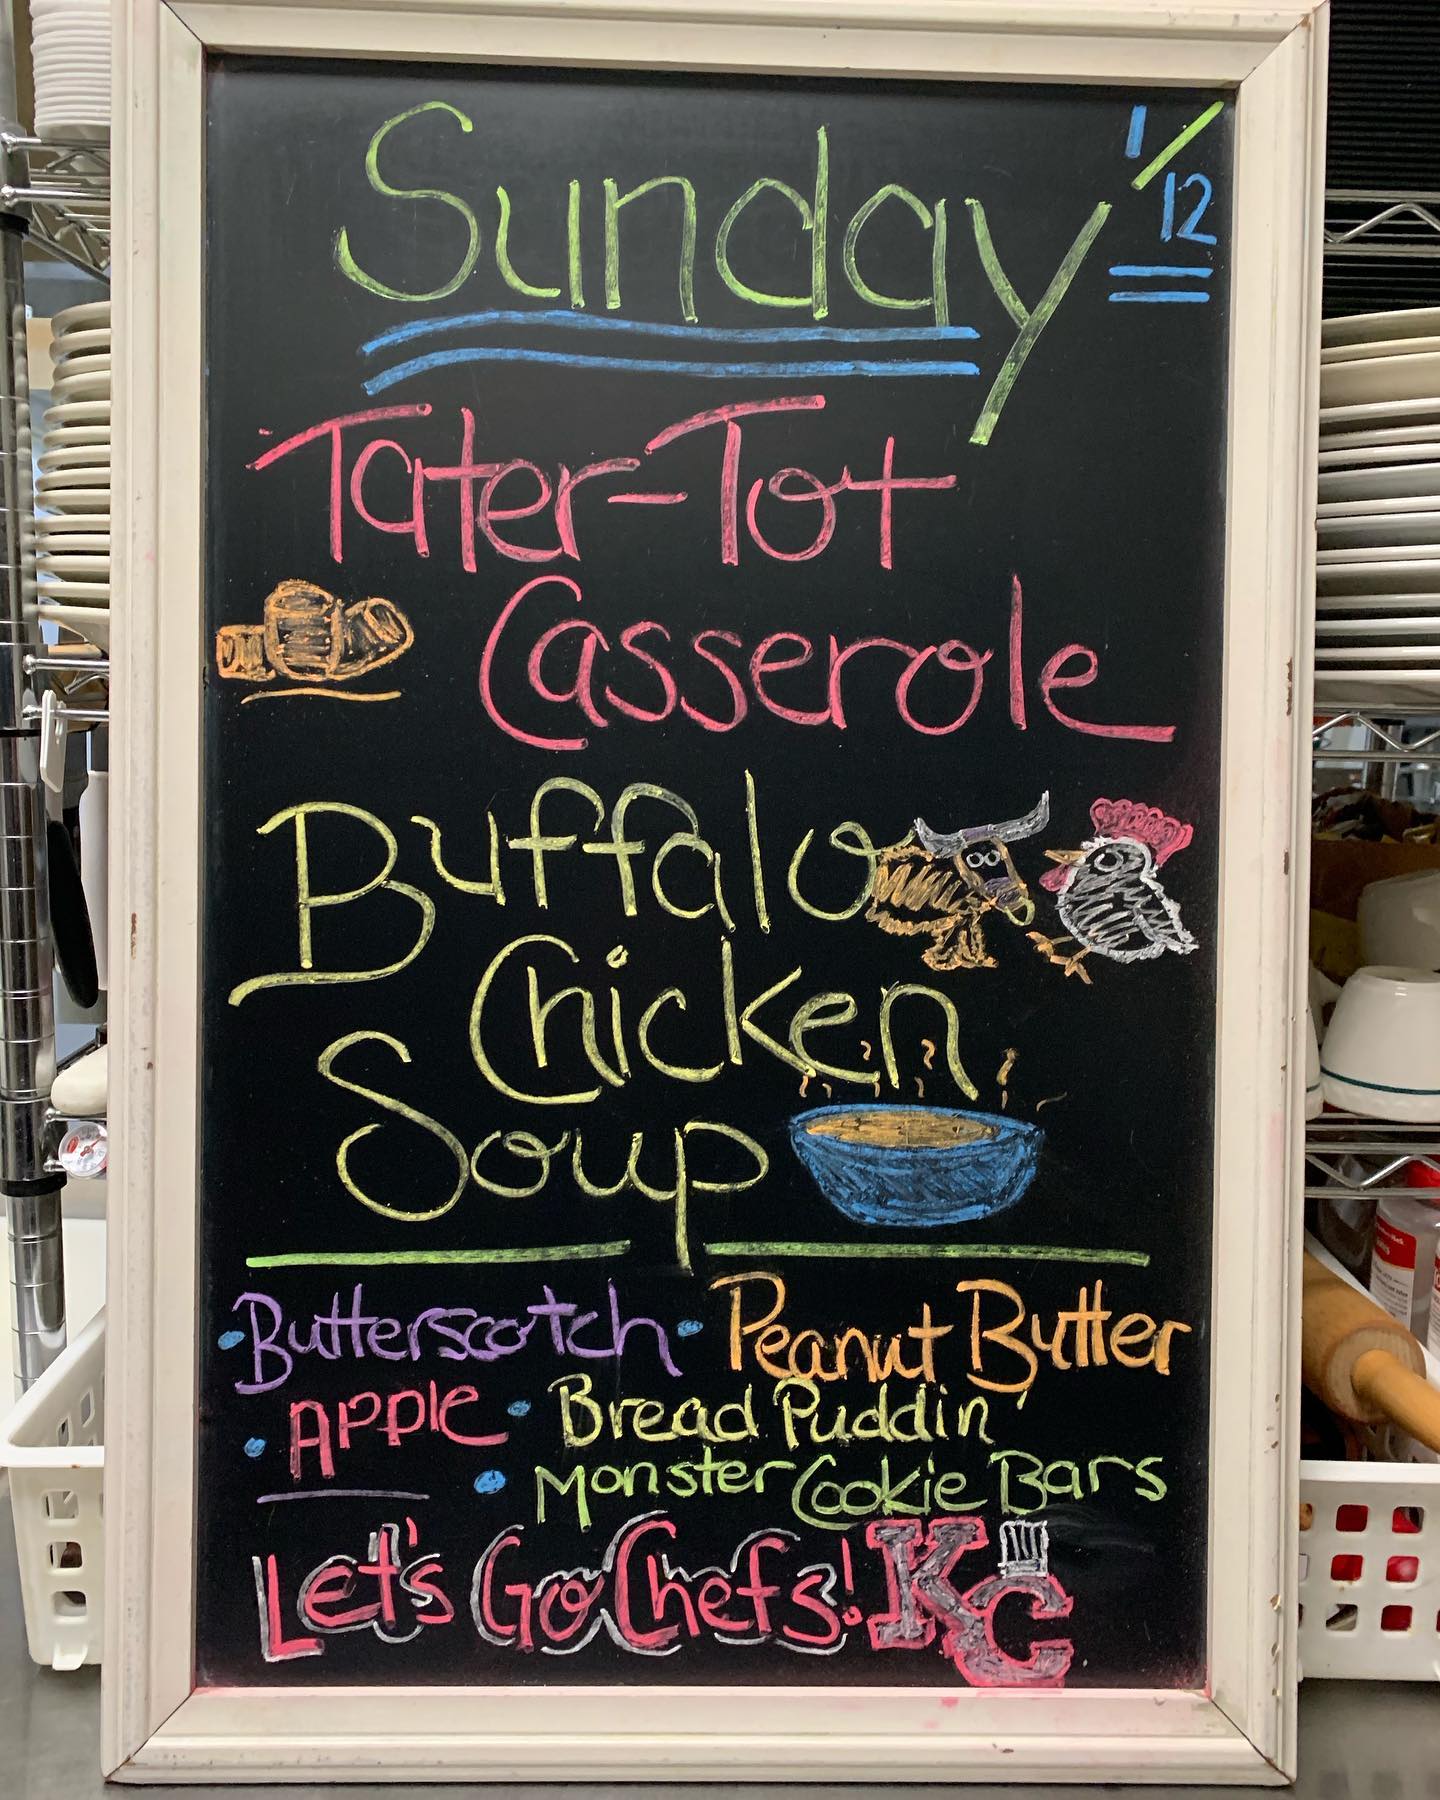 Sunday 1/12
Tater-Tot
Casserole
Buffalo
Chicken
Soup
• Butterscotch • Peanut Butter
• Apple • Bread Puddin'
• Monster Cookie Bars
Let's Go Chefs! KC